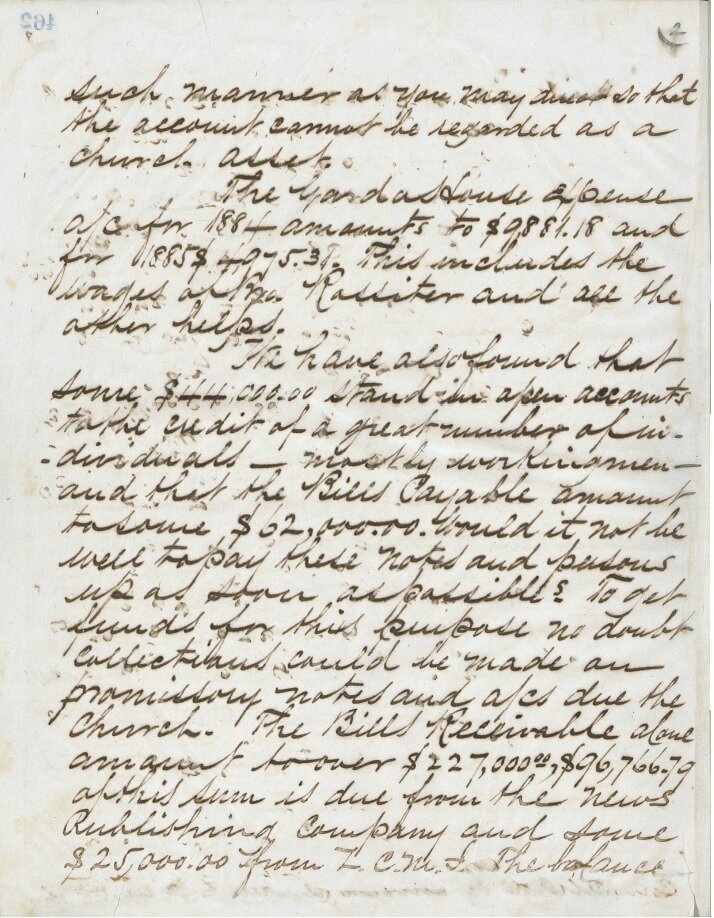 462
2
such manner as you may direct so that
the account cannot be regarded as a
church asset.
The Gardo House expense
a/c for 1884 amounts to $9881.18 and
for 1885 $4975.31. This includes the
wages of Bro. Rossiter and all the
other helps.
We have also found that
some $44,000.00 stand in open accounts
to the credit of a great number of in-
dividuals — mostly workingmen —
and that the Bills Payable amount
to some $62,000.00. Would it not be
well to pay these notes and persons
up as soon as possible? To get
funds for this purpose no doubt
collections could be made on
promissory notes and a/cs due the
Church. The Bills Receivable alone
amount to over $227,000.00, $96,766.79
of this sum is due from the News
Publishing Company and some
$25,000.00 from Z.C.M.I. The balance